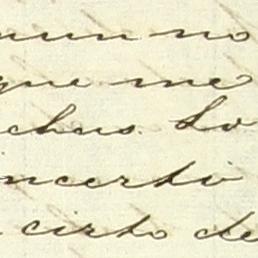 no
que me
chos. Lo
ncerti
cirto de